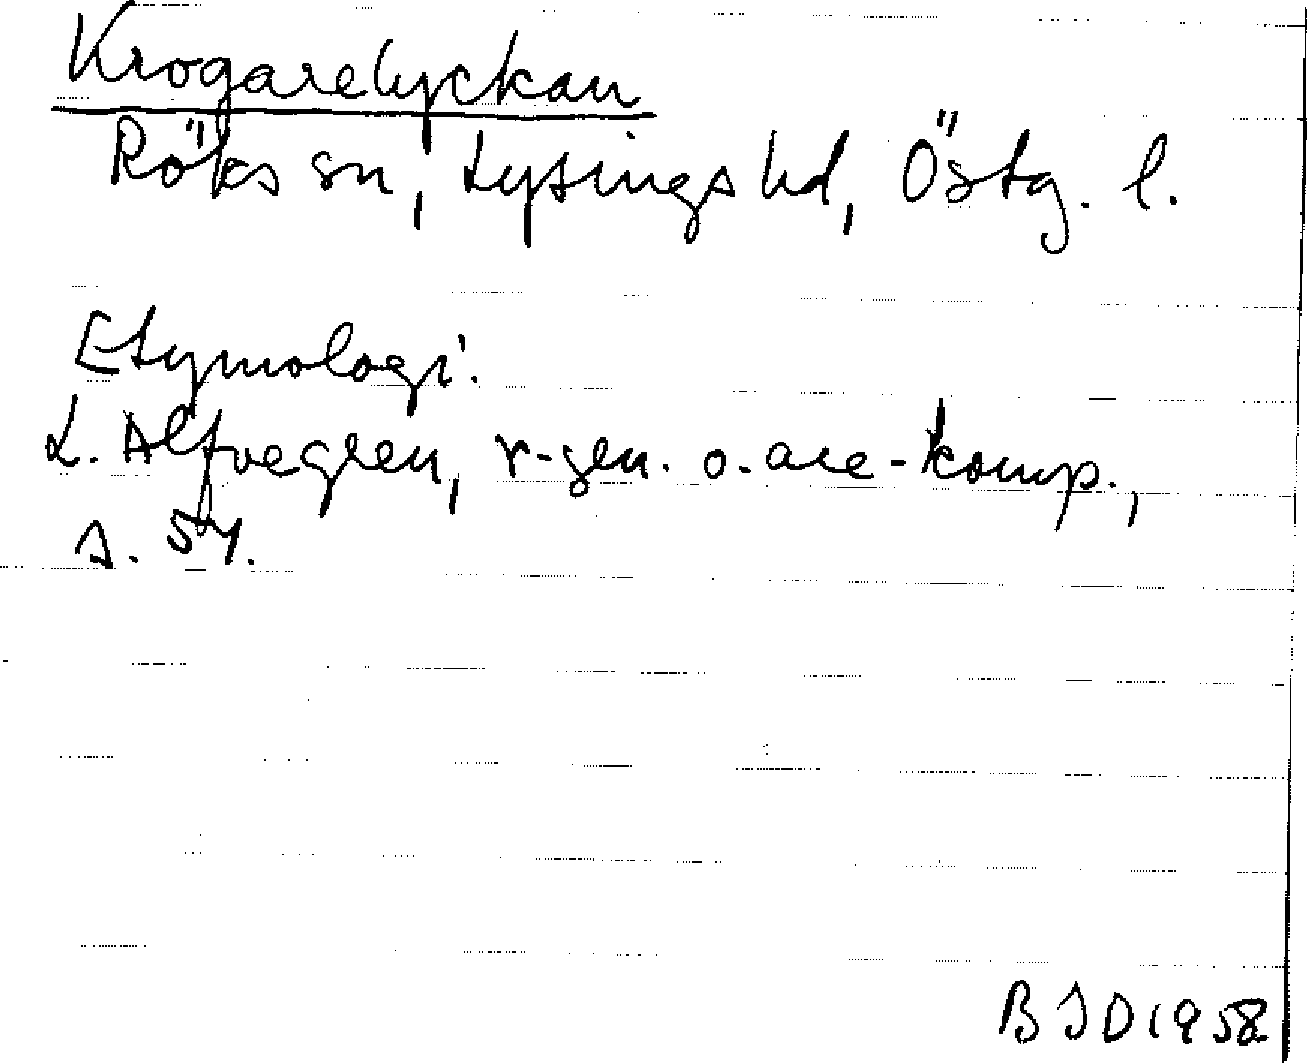 Krogarelyckan
Röks sn, Lysings hd, Östg. l.
Etymologi:
L. Alfvegren, r-gen. o. are-komp.,
s. 54.
B J D 1958